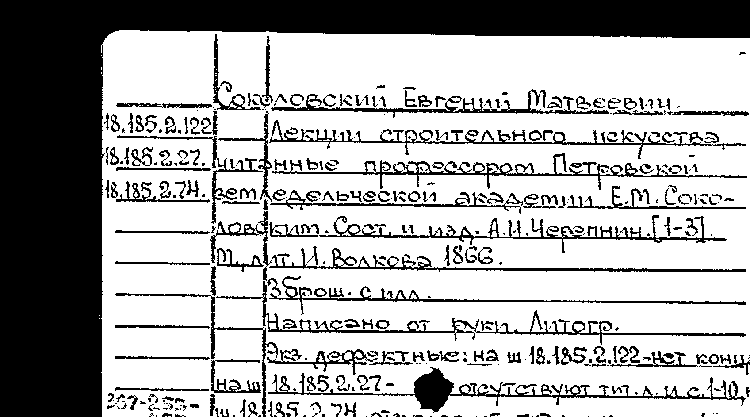 Соколовский, Евгений Матвеевич.
18.185.2.122 Лекции строительного искусства,
18.185.2.27. читанные профессором Петровской
18.185.2.74. земледельческой академии Е.М. Соко-
ловским. Сост. и изд. А.Н. Черепнин. [1-3].
М., лит. И. Волкова, 1866.
3 брош. с илл.
Написано от руки. Литогр.
Экз. дефектные: на ш. 18.185.2.122-нет конц
на ш 18.185.2.27- отсутствуют тит. л. и с. 1-10,
ш. 18.185.2.74